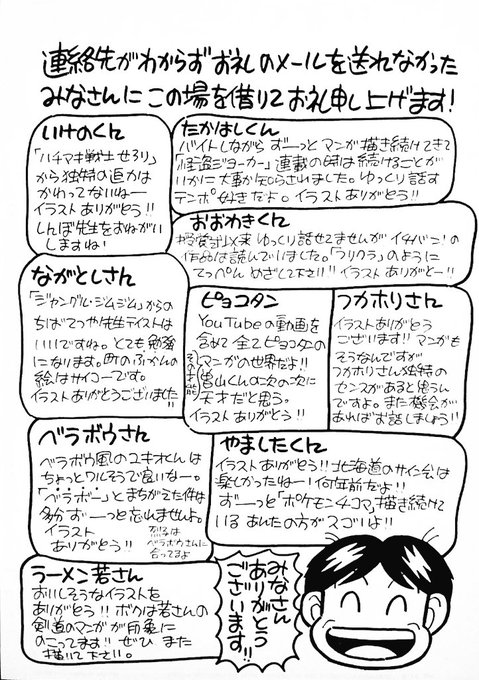 連絡先がわからずお礼のメールを送れなかった
みなさんにこの場を借りてお礼申し上げます!
いけのくん
「ハチマキ戦士せろり」
から独特の迫力は
かわってないねー
イラストありがとう!!
しんぼ先生をおねがい
しますね!
たかはしくん
バイトしながらずーっとマンガ描き続けてきて
「怪盗ジョーカー」連載の時は続けることが
いかに大事か知らされました。ゆっくり話す
テンポ好きだよ。イラストありがとう!
おおわきくん
授賞式以来ゆっくり話せてませんがイチバン!の
作品は読んでいました。「フリクラ」のように
てっぺんめざして下さい!!イラストありがとー!!
ながとしさん
「ジャングル・ジムジム」からの
ちばてつや先生テイストは
いいですね。とても勉強
になります。町のふかんの
絵はサイコーです。
イラストありがとうございました!!
ピョコタン
YouTubeの動画を
含めて全てピョコタンの
マンガの世界だよ!!
その才能
曽山くんの次の次に
天才だと思う。
イラストありがとう!!
つかホリさん
イラストありがとう
ございます!!マンガも
そうなんですが
つかホリさん独特の
センスがあると思うん
ですよ。また機会が
あればお話しましょう!!
ベラボウさん
ベラボウ風のユキオくんは
ちょっとワルそうで良いなー。
「ベラボー」とまちがえた件は
多分ずーっと忘れませんよ。
イラスト
ありがとう!!
烈るは
ベラボウさんに
合ってるよ
やましたくん
イラストありがとう!!北海道のサイン会は
楽しかったねー!何年前だよ!!
ずーっと「ポケモン4コマ」描き続けて
いるあんたの方がスゴいよ!!
ラーメン若さん
おいしそうなイラストを
ありがとう!!ボクは若さんの
剣道のマンガが印象に
のこってます!!ぜひまた
描いて下さい。
みなさん
ありがとう
ございます!!